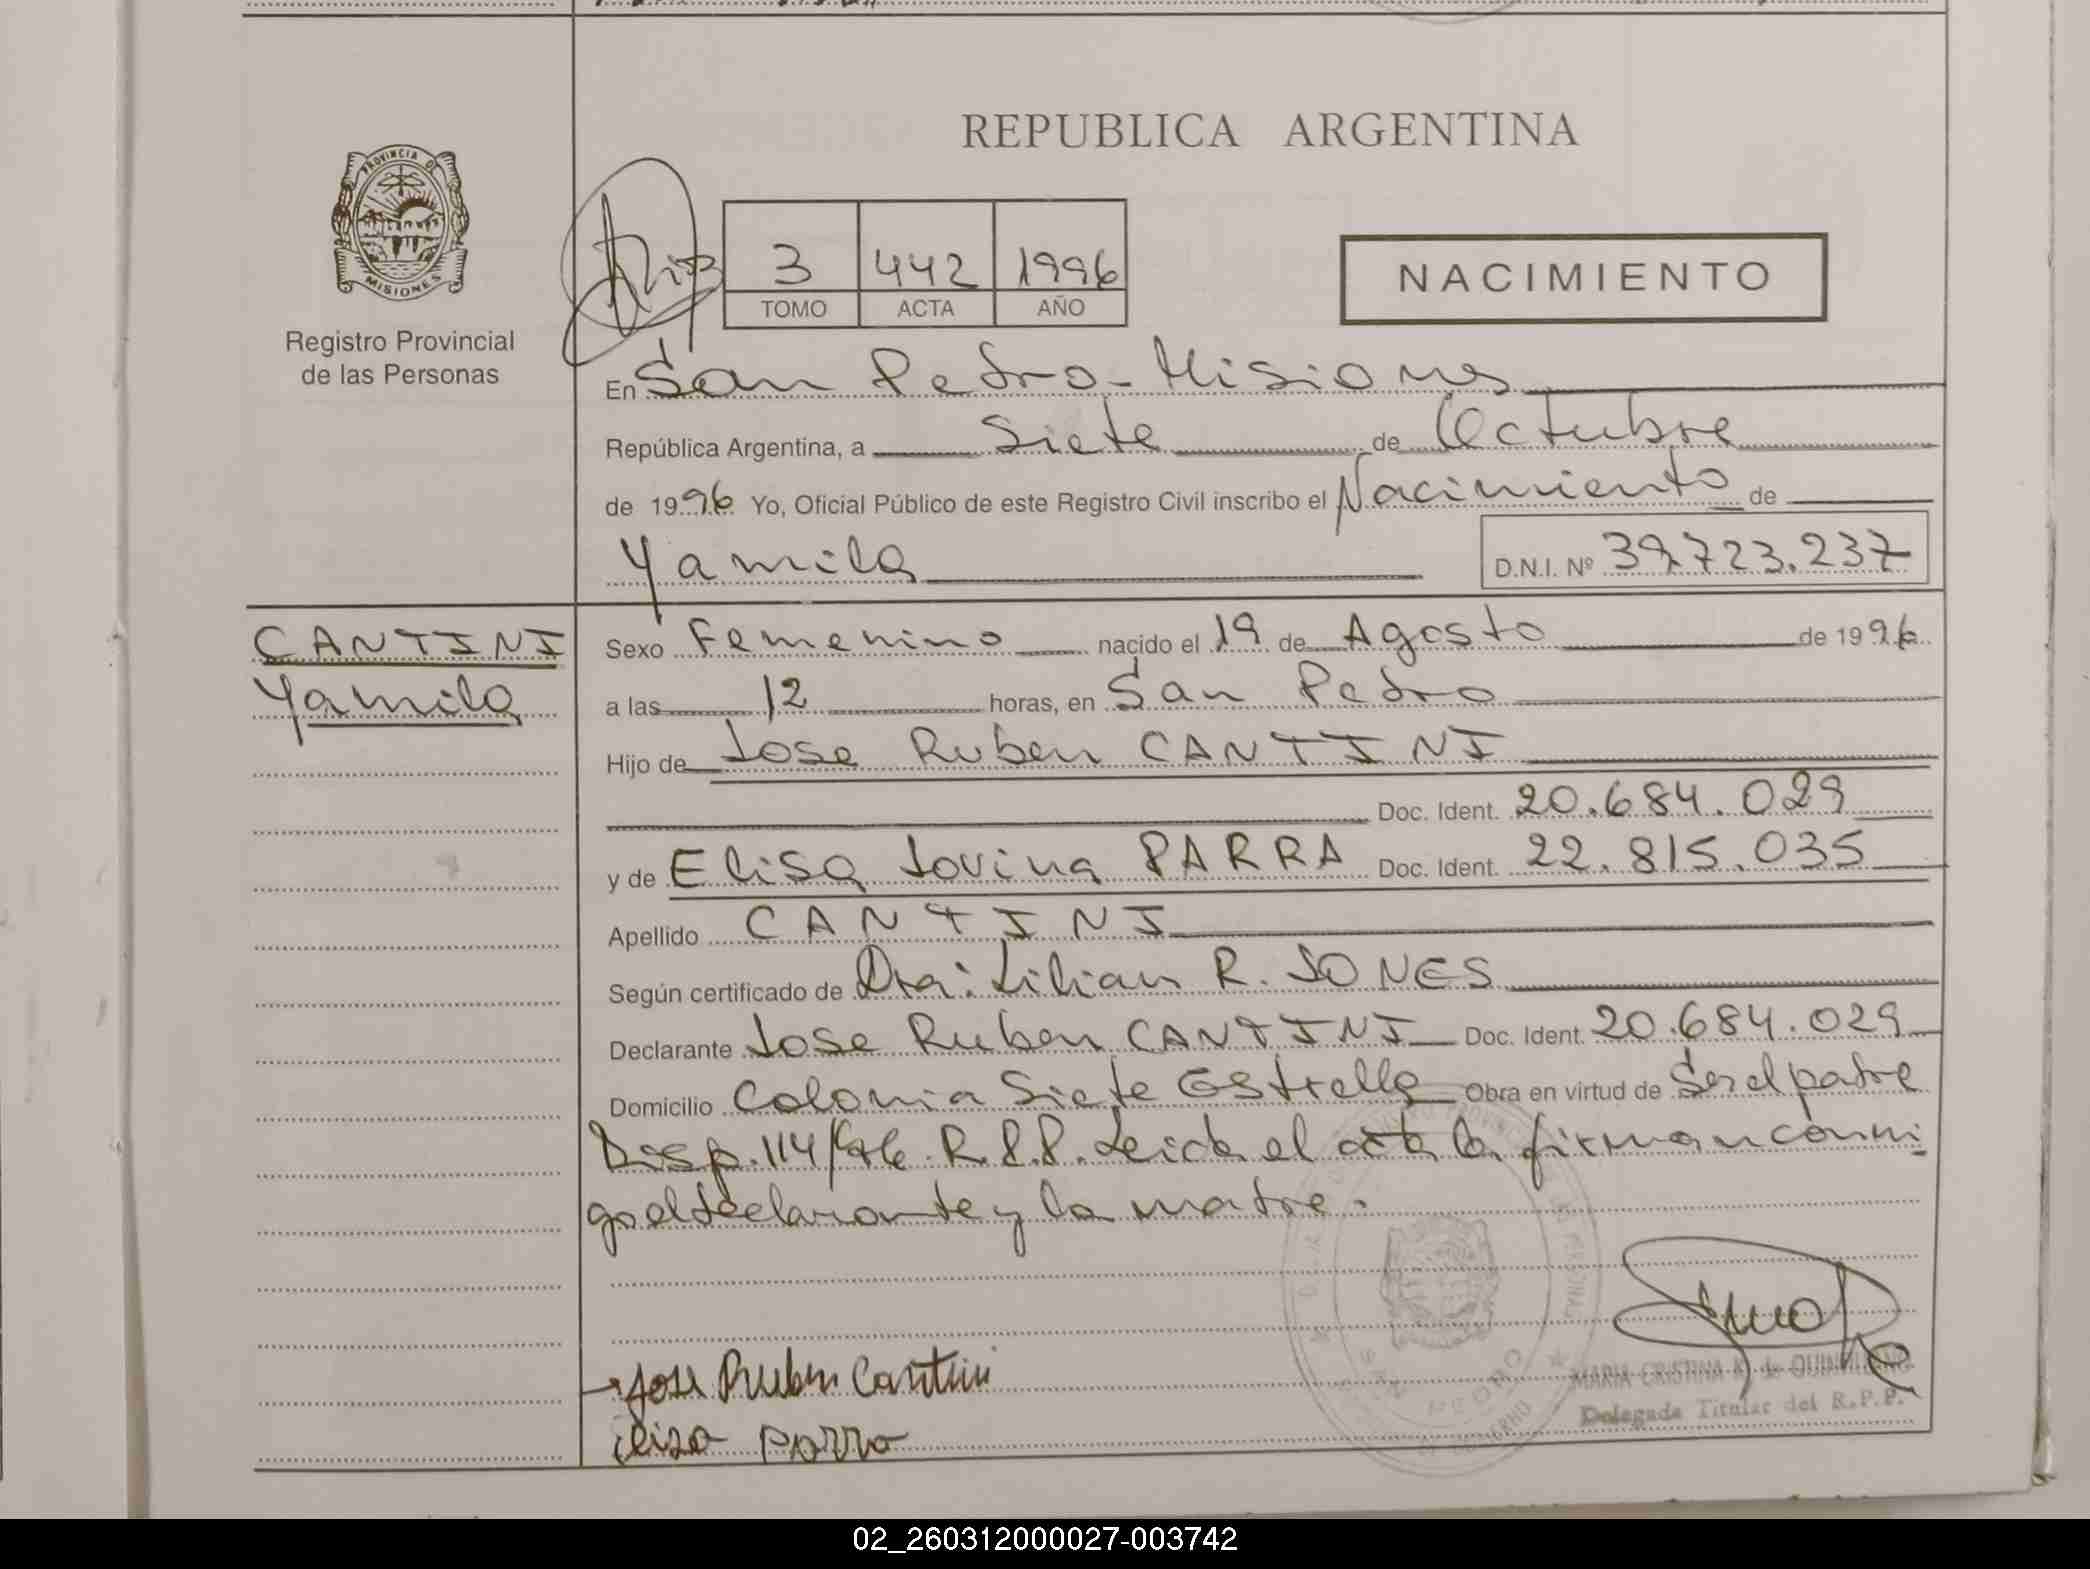 REPUBLICA ARGENTINA
PROVINCIA DE
MISIONES
Registro Provincial
de las Personas
3 442 1996
TOMO ACTA AÑO
NACIMIENTO
En San Pedro - Misiones
República Argentina, a Siete de Octubre
de 1996 Yo, Oficial Público de este Registro Civil inscribo el Nacimiento de
Yamila D.N.I. Nº 39.723.237
CANTINI
Yamila
Sexo Femenino nacido el 19 de Agosto de 1996
a las 12 horas, en San Pedro
Hijo de Jose Ruben CANTINI
Doc. Ident. 20.684.029
y de Elisa Jovina PARRA Doc. Ident. 22.815.035
Apellido CANTINI
Según certificado de Dra: Lilian R. JONES
Declarante Jose Ruben CANTINI Doc. Ident. 20.684.029
Domicilio Colonia Siete Estrella Obra en virtud de Ser el padre
Disp. 114/96. R.P.P. Leida el acta la firman conmi
go el declarante y la madre.
Jose Ruben Cantini
elisa parra
MARIA CRISTINA R. de
Delegada Titular del R.P.P.
02_260312000027-003742